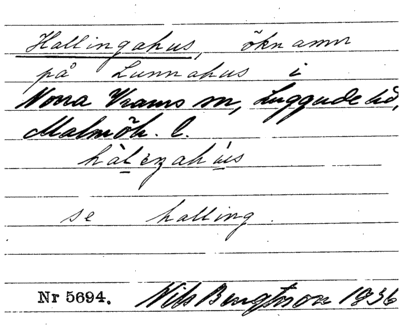 Hallingahus, öknamn
på Lunnahus i
Norra Vrams sn, Luggude hd,
Malmöh. l.
se halling.
Nr 5694. Nils Bengtsson 1936